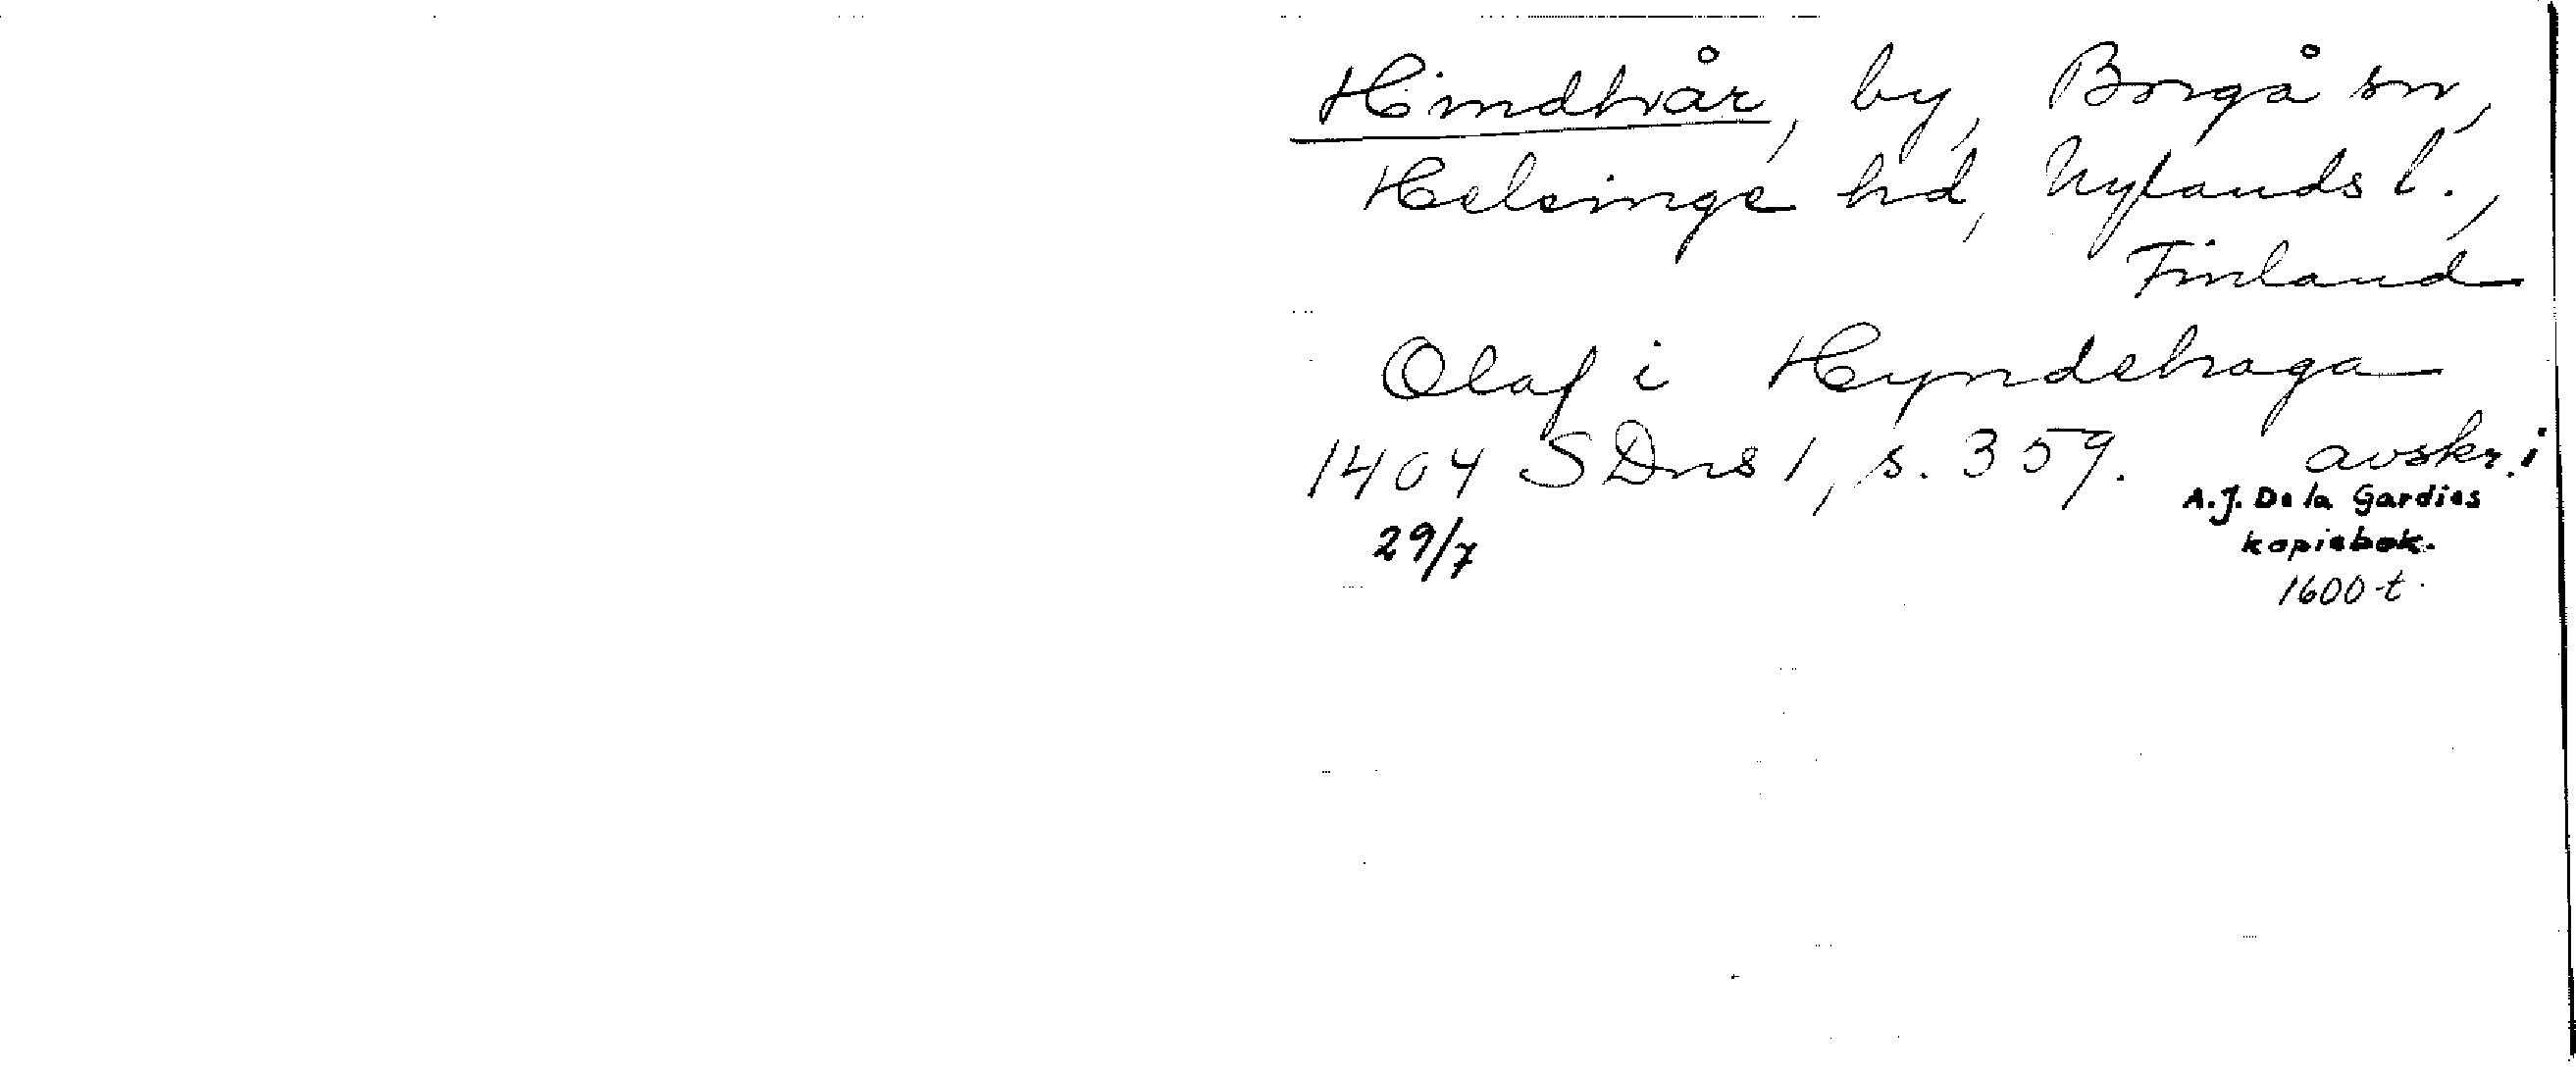 Hindhår, by, Borgå sn,
Helsinge hd, Nylands l.,
Finland
Olaf i Hyndehaga
1404 SDns 1, s. 359. avskr. i
29/7 A.J. De la Gardies
kopiebok.
1600-t.